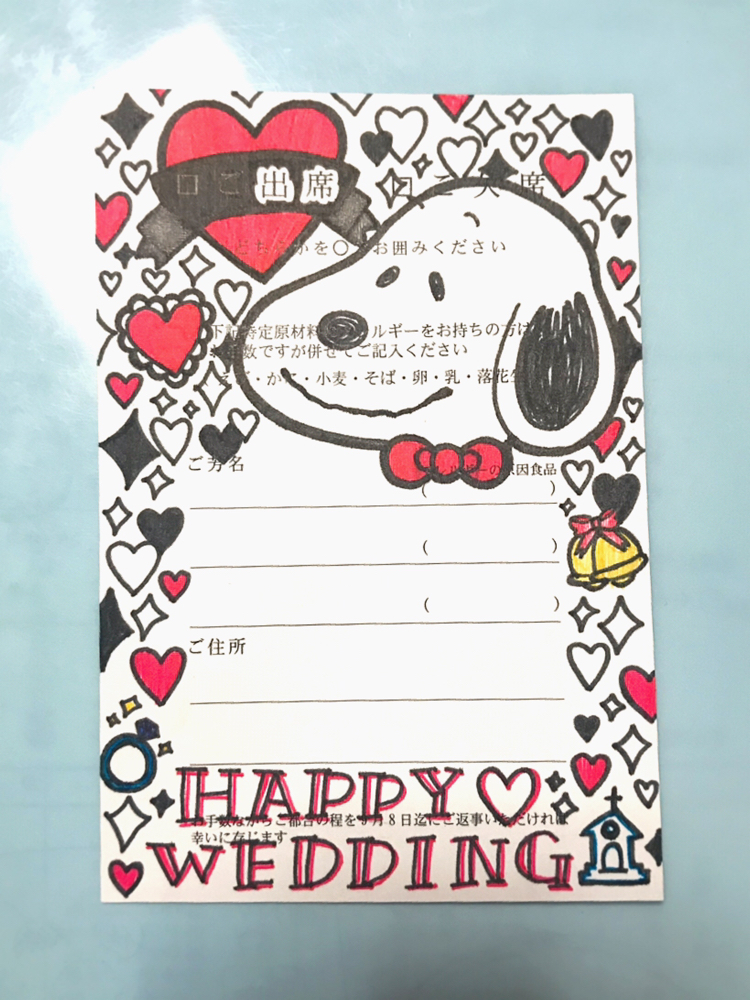 □ご出席 □ご欠席
どちらかを〇でお囲みください
下記特定原材料 ルギーをお持ちの方は
数ですが併せてご記入ください
えび・かに・小麦・そば・卵・乳・落花生
ご芳名
ルギーの原因食品
( )
( )
( )
ご住所
HAPPY♡
お手数ながらご都合の程を9月8日迄にご返事いただければ
幸いに存じます
WEDDING